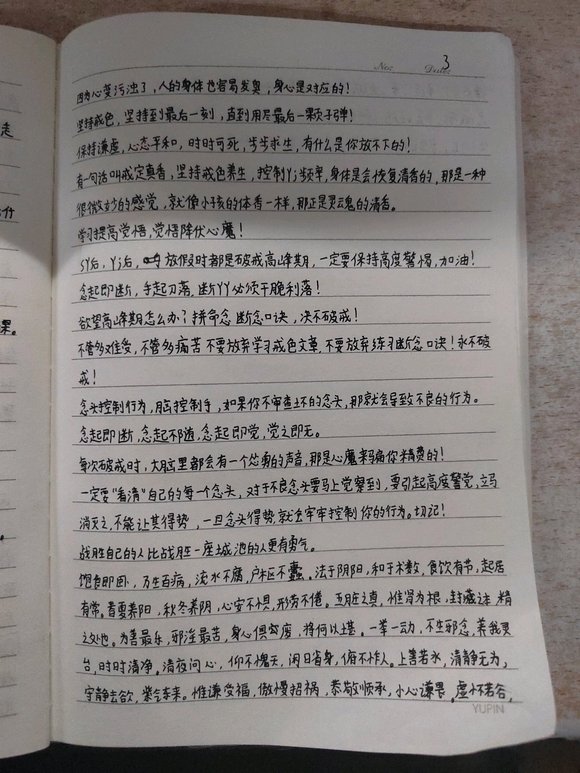 No:
Date:
3
因为心变污浊了，人的身体也容易发臭，身心是对应的！
坚持戒色，坚持到最后一刻，直到用尽最后一颗子弹！
保持谦虚，心态平和，时时可死，步步求生，有什么是你放不下的！
有一句话叫戒定真香，坚持戒色养生，控制YJ频率，身体是会恢复清香的，那是一种
很微妙的感觉，就像小孩的体香一样，那正是灵魂的清香。
学习提高觉悟，觉悟降伏心魔！
SY后，YJ后，放假时都是破戒高峰期，一定要保持高度警惕，加油！
念起即断，手起刀落，断YY必须干脆利落！
欲望高峰期怎么办？拼命念断念口诀，决不破戒！
不管多难受，不管多痛苦不要放弃学习戒色文章，不要放弃练习断念口诀！永不破
戒！
念头控制行为，脑控制手，如果你不审查坏的念头，那就会导致不良的行为。
念起即断，念起不随，念起即觉，觉之即无。
每次破戒时，大脑这里都会有一个怂恿的声音，那是心魔来骗你精费的！
一定要“看清”自己的每一个念头，对于不良念头要马上觉察到，要引起高度警觉，立马
消灭之，不能让其得势，一旦念头得势，就会牢牢控制你的行为。切记！
战胜自己的人比战胜一座城池的人更有勇气。
饱食即卧，乃生百病，流水不腐，户枢不蠹，法于阴阳，和于术数，食饮有节，起居
有常。春夏养阳，秋冬养阴，心安不惧，形劳不倦。五脏之真，惟肾为根，封藏之本，精
之处也。为善最乐，邪淫最苦，身心俱劳废，将何以堪。一举一动，不生邪念，养我灵
台，时时清净。清夜问心，仰不愧天，闲日省身，俯不怍人。上善若水，清静无为，
守静去欲，紫气东来。惟谦受福，傲慢招祸，恭敬顺承，小心谦畏。虚怀若谷，
YUPIN
走
什
课。